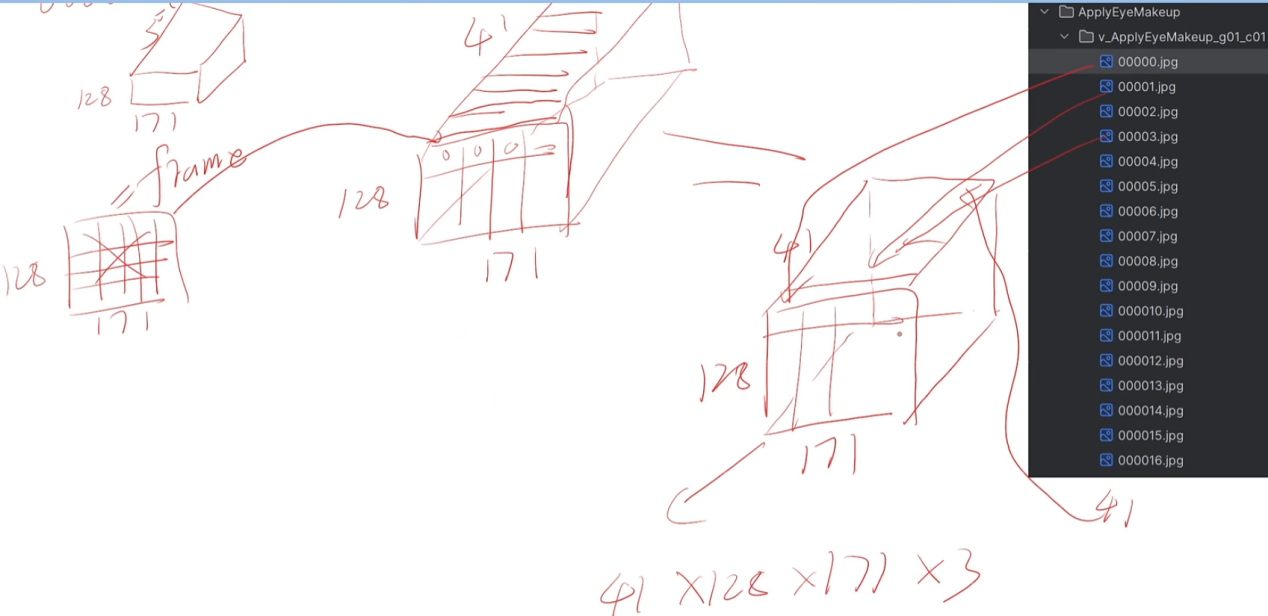 3
128
171
frame
128
171
41
128
171
41
128
171
41
41 × 128 × 171 × 3
ApplyEyeMakeup
v_ApplyEyeMakeup_g01_c01
00000.jpg
00001.jpg
00002.jpg
00003.jpg
00004.jpg
00005.jpg
00006.jpg
00007.jpg
00008.jpg
00009.jpg
000010.jpg
000011.jpg
000012.jpg
000013.jpg
000014.jpg
000015.jpg
000016.jpg